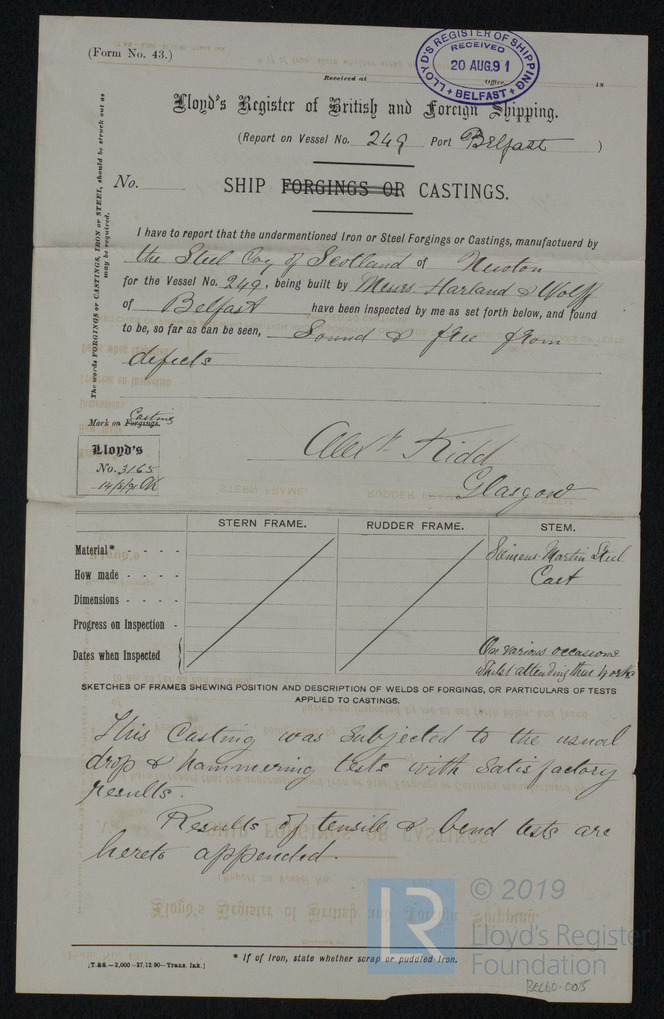 (Form No. 43.)
LLOYD'S REGISTER OF SHIPPING
RECEIVED
20 AUG.91
BELFAST
Received at
Office,
18
Lloyd's Register of British and Foreign Shipping.
(Report on Vessel No. 249 Port Belfast )
No.
SHIP FORGINGS OR CASTINGS.
The words FORGINGS or CASTINGS, IRON or STEEL, should be struck out as
may be required.
I have to report that the undermentioned Iron or Steel Forgings or Castings, manufactuerd by
the Steel Coy of Scotland of Newton
for the Vessel No. 249, being built by Messrs. Harland & Wolff
of Belfast have been inspected by me as set forth below, and found
to be, so far as can be seen, Sound & free from
defects
Casting
Mark on Forgings.
Lloyd's
No. 3165
14/8/91 AK
Alexr Kidd
Glasgow
STERN FRAME. RUDDER FRAME. STEM.
Material* - - - - Siemens-Martin Steel
How made - - - - Cast
Dimensions - - - -
Progress on Inspection -
Dates when Inspected On various occasions
whilst attending these works
SKETCHES OF FRAMES SHEWING POSITION AND DESCRIPTION OF WELDS OF FORGINGS, OR PARTICULARS OF TESTS
APPLIED TO CASTINGS.
This Casting was subjected to the usual
drop & hammering tests with satisfactory
results.
Results of tensile & bend tests are
hereto appended.
* If of Iron, state whether scrap or puddled iron.
[T.&S.—2,000—27.12.90—Trans. Ink.]
LR
© 2019
Lloyd's Register
Foundation
BEL60-0015